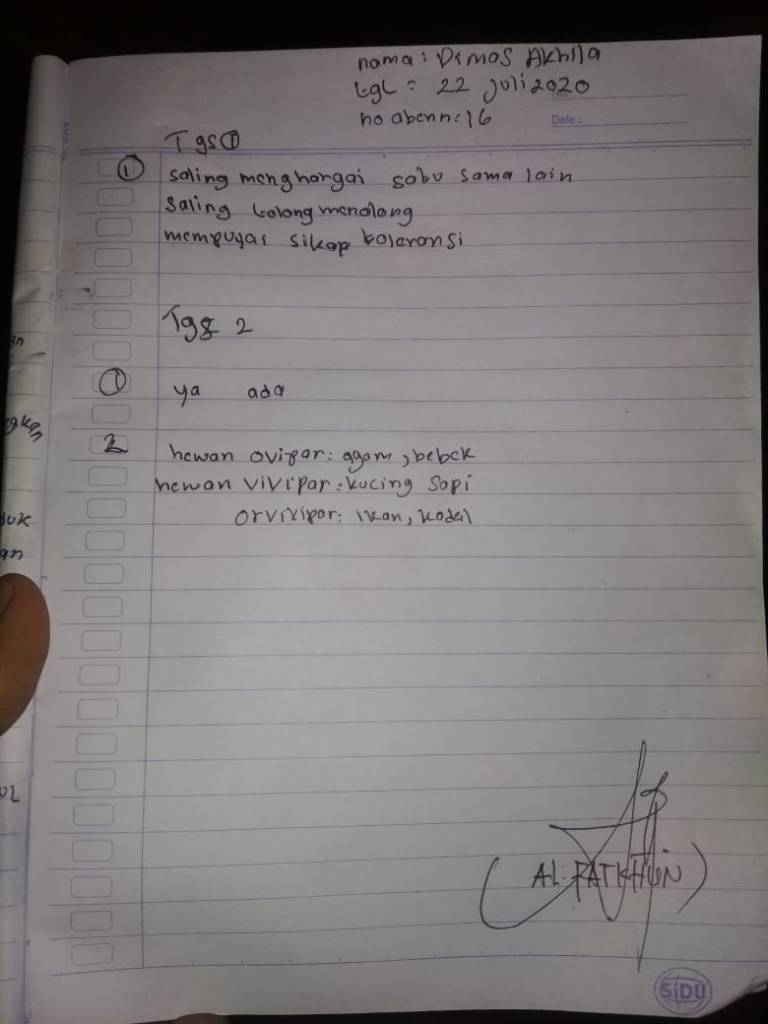 nama: Dimas Akhila
tgl = 22 juli 2020
no absen: 16
Date :
Tgs ①
① saling menghargai satu sama lain
saling tolong menolong
mempuyai sikap toleransi
Tgs 2
① ya ada
2 hewan ovipar: ayam, bebek
hewan vivipar: kucing sapi
orvivipar: ikan, kadal
(AL. FATKHUN)
SiDU